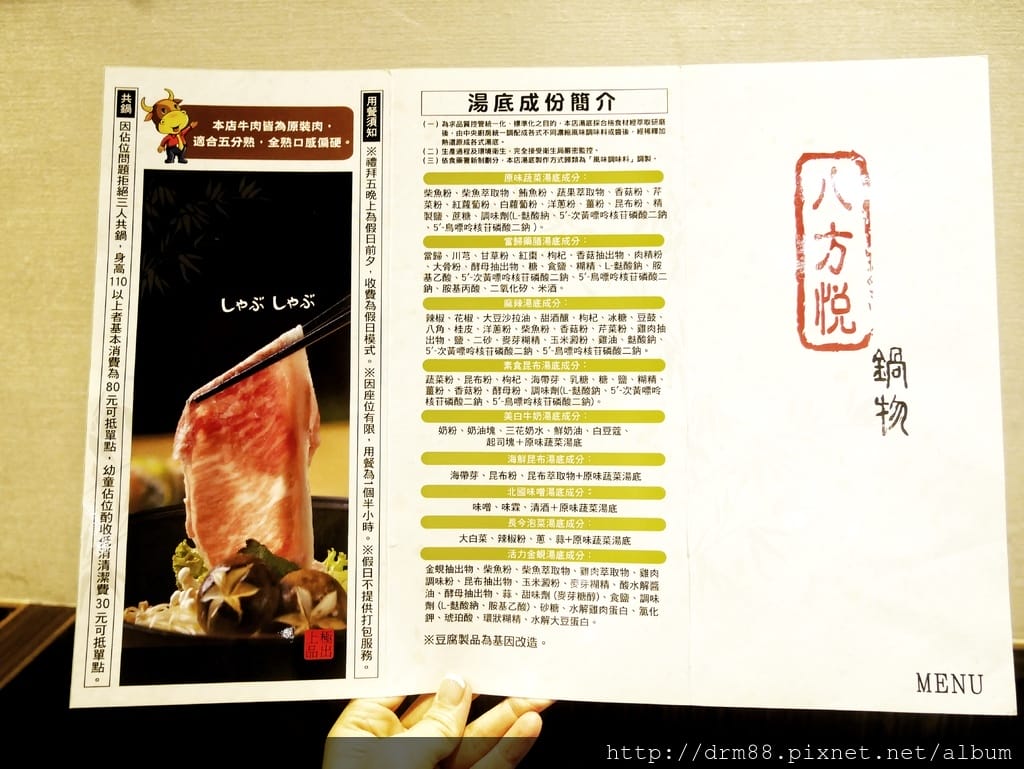 共鍋
因佔位問題拒絕三人共鍋，身高110以上者基本消費為80元可抵單點，幼童佔位酌收低消清潔費30元可抵單點。
本店牛肉皆為原裝肉，
適合五分熟，全熟口感偏硬。
しゃぶ しゃぶ
極出
上品
用餐須知
※禮拜五晚上為假日前夕，收費為假日模式。※因座位有限，用餐為1個半小時。※假日不提供打包服務。
湯底成份簡介
(一) 為求品質控管統一化、標準化之目的，本店湯底採合格食材經萃取研磨
後，由中央廚房統一調配成各式不同濃縮風味調味料或醬後，經稀釋加
熱還原成各式湯底。
(二) 生產過程及環境衛生，完全接受衛生局嚴密監控。
(三) 依食藥署新制劃分，本店湯底製作方式歸類為「風味調味料」調製。
原味蔬菜湯底成分：
柴魚粉、柴魚萃取物、鮪魚粉、蔬果萃取物、香菇粉、芹
菜粉、紅蘿蔔粉、白蘿蔔粉、洋蔥粉、薑粉、昆布粉、精
製鹽、蔗糖、調味劑(L-麩酸鈉、5'-次黃嘌呤核苷磷酸二鈉
、5'-鳥嘌呤核苷磷酸二鈉)。
當歸藥膳湯底成分：
當歸、川芎、甘草粉、紅棗、枸杞、香菇抽出物、肉精粉
、大骨粉、酵母抽出物、糖、食鹽、糊精、L-麩酸鈉、胺
基乙酸、5'-次黃嘌呤核苷磷酸二鈉、5'-鳥嘌呤核苷磷酸二
鈉、胺基丙酸、二氧化矽、米酒。
麻辣湯底成分：
辣椒、花椒、大豆沙拉油、甜酒釀、枸杞、冰糖、豆鼓、
八角、桂皮、洋蔥粉、柴魚粉、香菇粉、芹菜粉、雞肉抽
出物、鹽、二砂、麥芽糊精、玉米澱粉、雞油、麩酸鈉、
5'-次黃嘌呤核苷磷酸二鈉、5'-鳥嘌呤核苷磷酸二鈉。
素食昆布湯底成分：
蔬菜粉、昆布粉、枸杞、海帶芽、乳糖、糖、鹽、糊精、
薑粉、香菇粉、酵母粉、調味劑(L-麩酸鈉、5'-次黃嘌呤
核苷磷酸二鈉、5'-鳥嘌呤核苷磷酸二鈉)。
美白牛奶湯底成分：
奶粉、奶油塊、三花奶水、鮮奶油、白豆蔻、
起司塊+原味蔬菜湯底
海鮮昆布湯底成分：
海帶芽、昆布粉、昆布萃取物+原味蔬菜湯底
北國味噌湯底成分：
味噌、味霖、清酒+原味蔬菜湯底
長今泡菜湯底成分：
大白菜、辣椒粉、蔥、蒜+原味蔬菜湯底
活力金蜆湯底成分：
金蜆抽出物、柴魚粉、柴魚萃取物、雞肉萃取物、雞肉
調味粉、昆布抽出物、玉米澱粉、麥芽糊精、酸水解醬
油、酵母抽出物、蒜、甜味劑 (麥芽糖醇)、食鹽、調味
劑 (L-麩酸鈉、胺基乙酸)、砂糖、水解雞肉蛋白、氯化
鉀、琥珀酸、環狀糊精、水解大豆蛋白。
※豆腐製品為基因改造。
八方悦
鍋物
MENU
http://drm88.pixnet.net/album